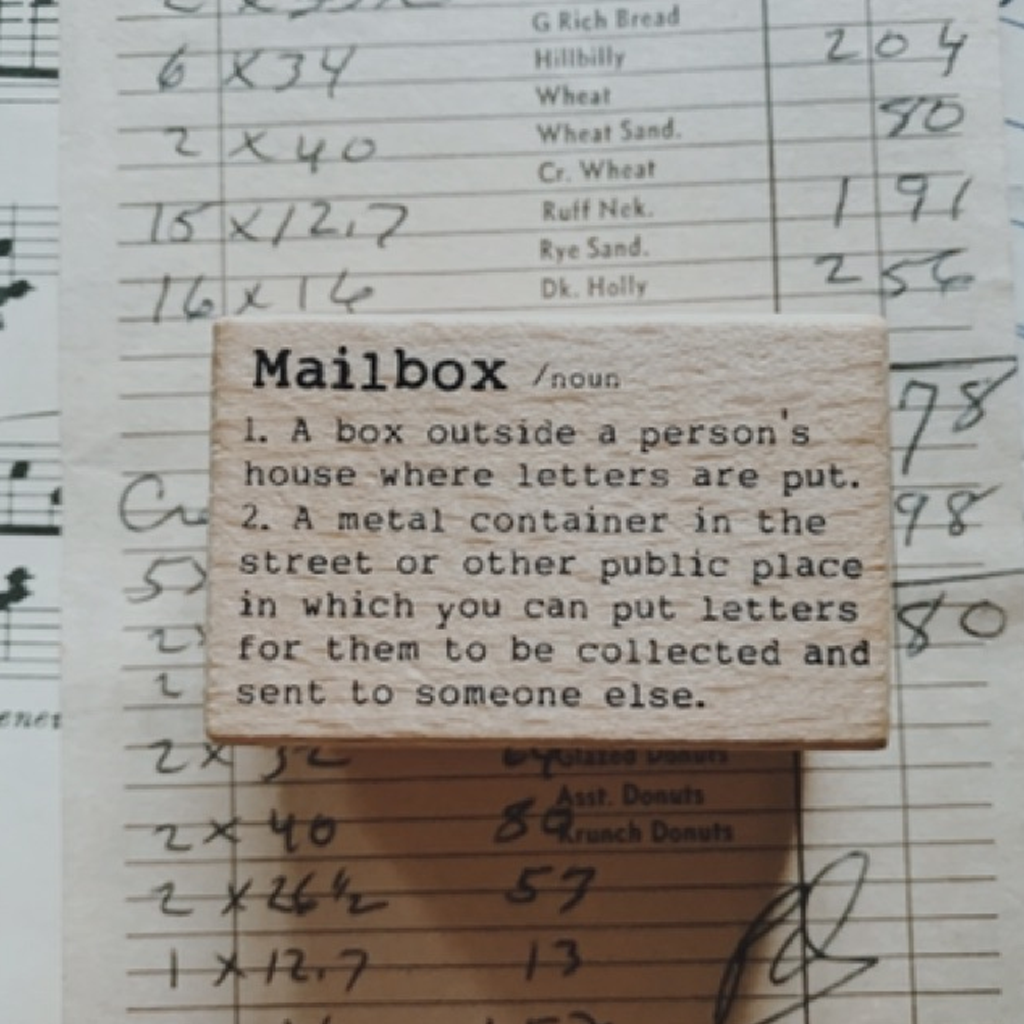 G Rich Bread
6 x 34 Hillbilly 2 04
Wheat 80
2 x 40 Wheat Sand.
Cr. Wheat
15 x 12.7 Ruff Nek. 1 91
Rye Sand.
16 x 16 Dk. Holly 2 56
Mailbox /noun
1. A box outside a person's
house where letters are put.
2. A metal container in the
street or other public place
in which you can put letters
for them to be collected and
sent to someone else.
78
98
80
2 x 32 64 Glazed Donuts
Asst. Donuts
2 x 40 80 Krunch Donuts
2 x 26 1/2 57
1 x 12.7 13